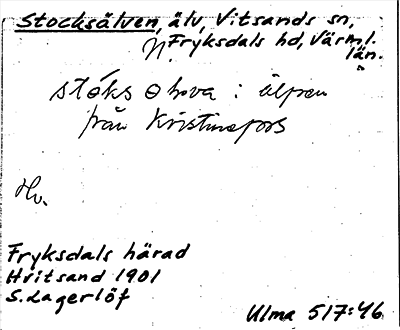 Stocksälven, älv, Vitsands sn,
N. Fryksdals hd, Värml.
län.
älfven
från Kristinefors
Hv.
Fryksdals härad
Hvitsand 1901
S. Lagerlöf
Ulma 517:46